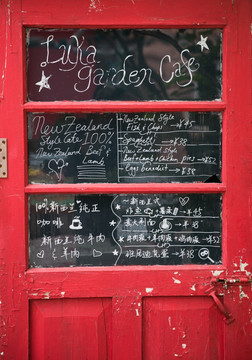 Luka
garden Cafe
New Zealand
Style Cafe 100%
New Zealand Beef &
Lamb
New Zealand Style
Fish & Chips → ¥45
Spaghetti → ¥38
New Zealand Style
Beef + Lamb + Chicken Pies → ¥52
Eggs benedict → ¥38
100% 新西兰纯正
咖啡
100% 新西兰牛肉
羊肉
新西兰式
炸鱼 + 薯条 → ¥45
意大利面 → ¥38
牛肉派 + 羊肉派 + 鸡肉派 → ¥52
班尼迪克蛋 → ¥38